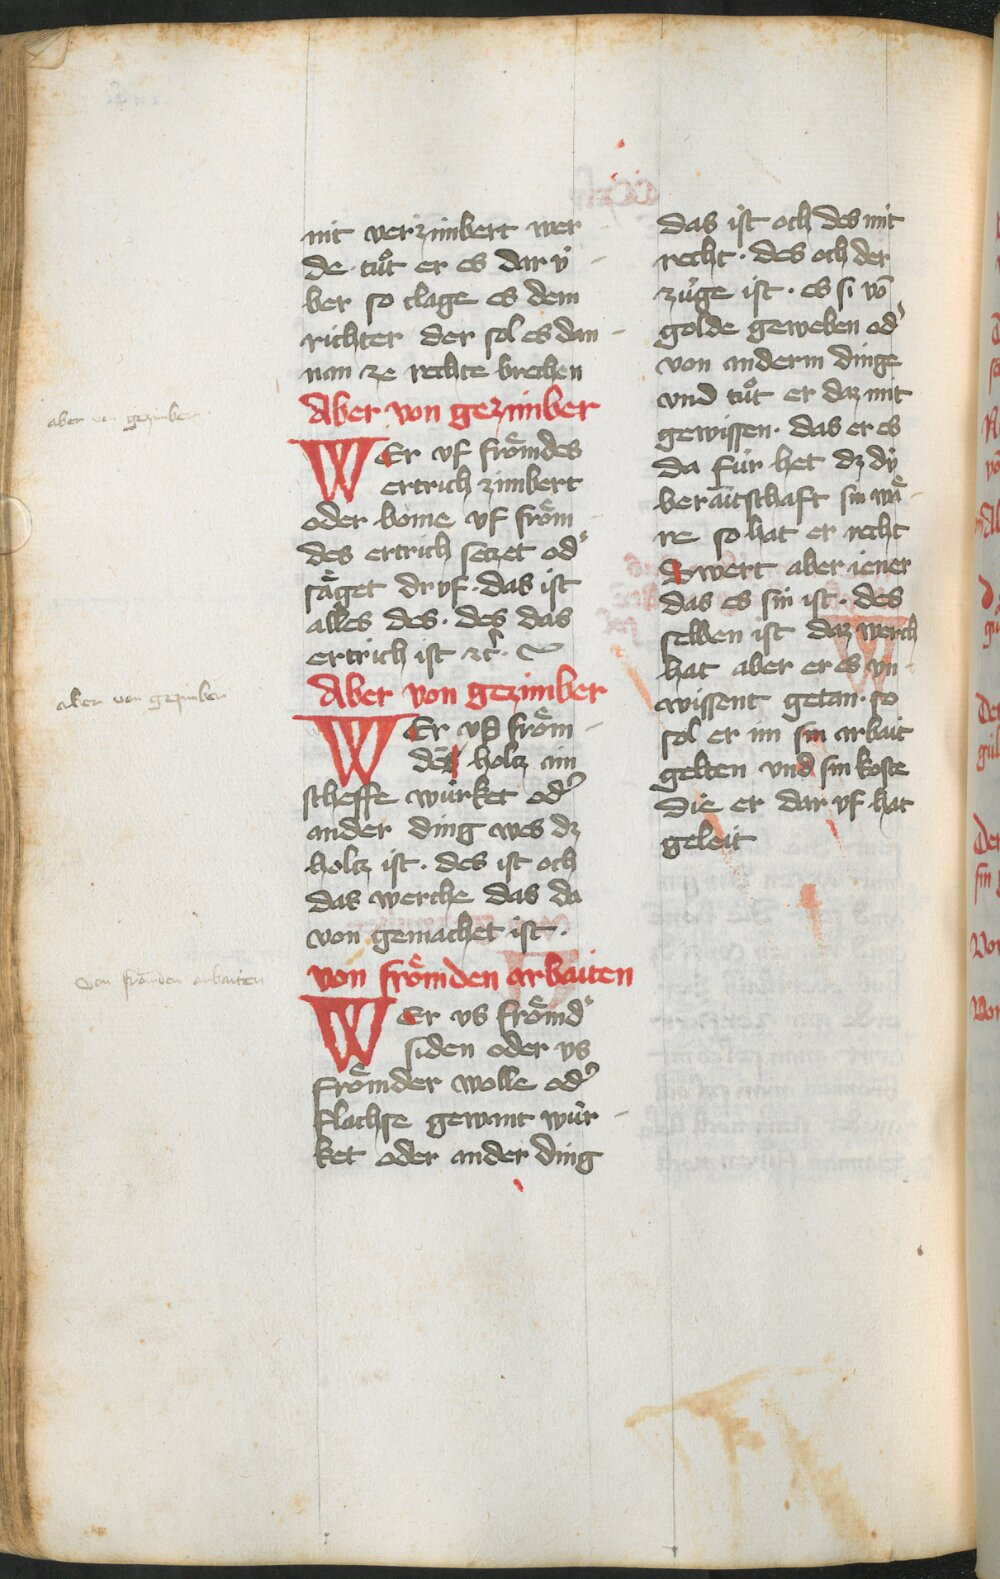 nit verzimbert wer
de · tuͦt er es dar v̈
ber so clage es dem
richter der sol es dan
nan ze rechte brechen
Aber von gezimber
WEr vf froͤmdes
ertrich zimbert
oder boͤme vf froͤm
des ertrich seczet od᾽
saͤget dr vf · das ist
alles des · des das
ertrich ist ꝛcꝛ̃ ·
Aber von gezimber
WEr vß froͤm
dē holcz ain
scheffe wuͤrket od᾽
ander ding wes dz
holcz ist · des ist och
das werche das da
von gemachet ist ·
von froͤmden arbaiten
WEr vs froͤmd᾽
siden oder vs
froͤmder wolle od᾽
flachse gewant wuͤr
ket oder ander ding
das ist och des mit
recht · des och der
zuͤge ist · es si vō
golde geweben od᾽
von anderm dinge
vnd tuͦt er daz mit
gewissen · das er es
da fuͤr het dz dÿ
beraitschaft sin waͤ
re so hat er recht
wert aber iener
das es sin ist · des
selben ist daz werch
hat aber er es vn
wissent getan · so
sol er im sin arbait
gelten vnd sin koste
die er dar vf hat
geleit
aber von gezimber
aber von gezimber
Von froͤmden arbaiten